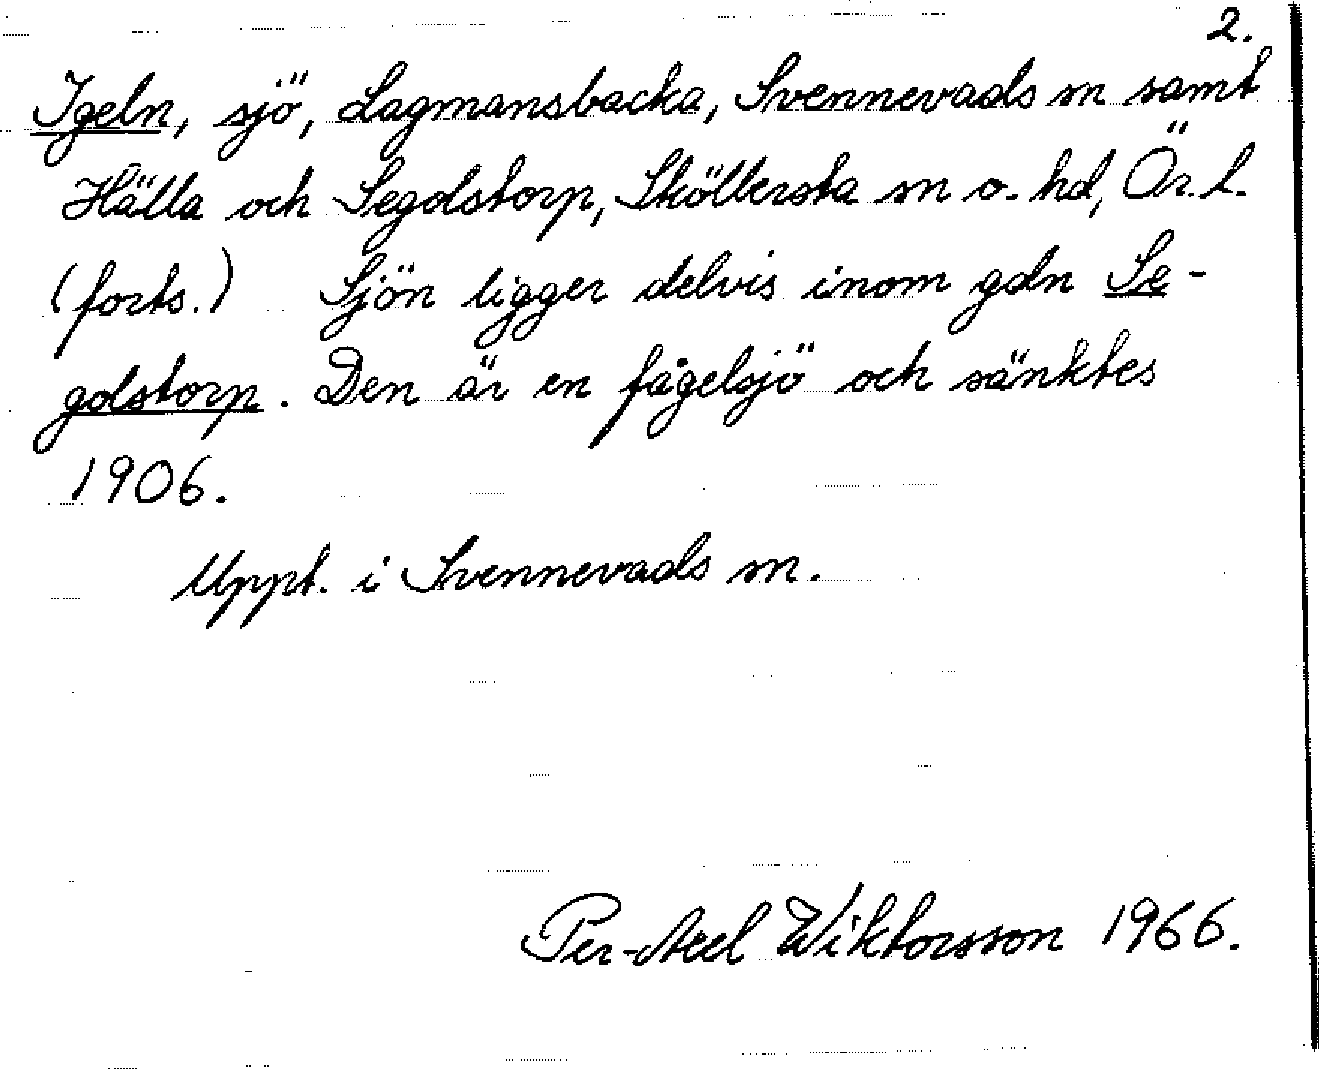 2.
Igeln, sjö, Lagmansbacka, Svennevads sn samt
Hälla och Segolstorp, Sköllersta sn o. hd, Ör. l.
(forts.) Sjön ligger delvis inom gdn Se-
golstorp. Den är en fågelsjö och sänktes
1906.
Uppt. i Svennevads sn.
Per-Axel Wiktorsson 1966.